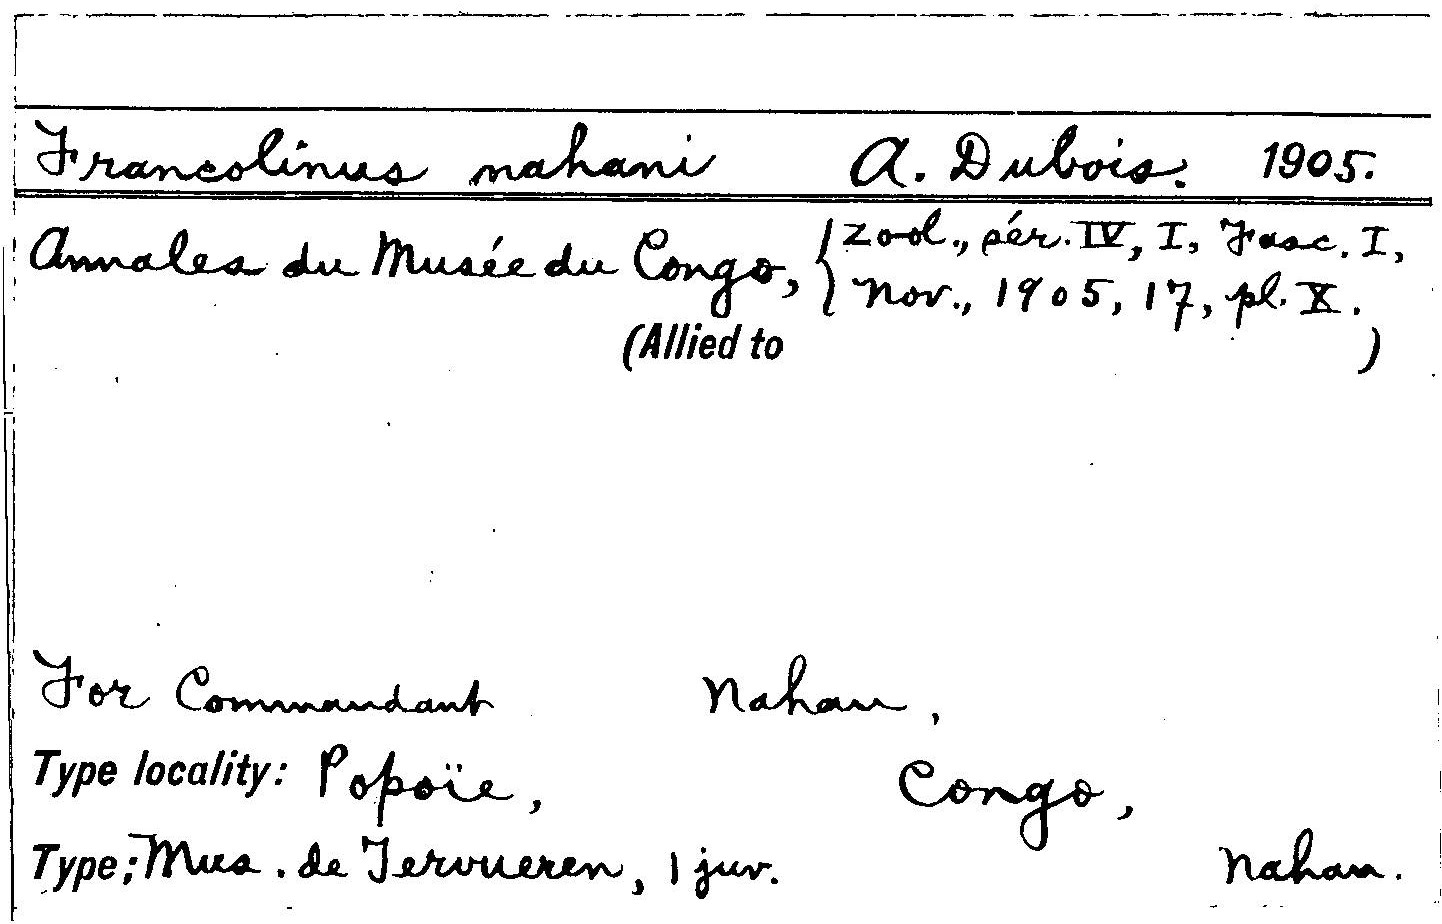 Francolinus nahani A. Dubois. 1905.
Annales du Musée du Congo, { Zool., sér. IV, I, Fasc. I,
Nov., 1905, 17, pl. X.
(Allied to )
For Commandant Nahan,
Type locality: Popoïe, Congo,
Type; Mus. de Tervueren, 1 juv. Nahan.